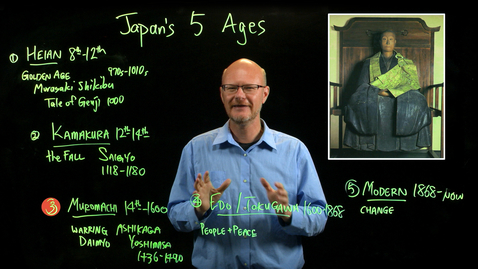 Japan's 5 Ages
① HEIAN 8th-12th
GOLDEN AGE 970s-1010s
Murasaki Shikibu
Tale of Genji 1000
② KAMAKURA 12th-14th
the FALL SAIGYO
1118-1180
③ MUROMACHI 14th-1600
WARRING ASHIKAGA
DAIMYO YOSHIMASA
1436-1490
④ EDO/TOKUGAWA 1600-1868
PEOPLE + PEACE
⑤ MODERN 1868-NOW
CHANGE